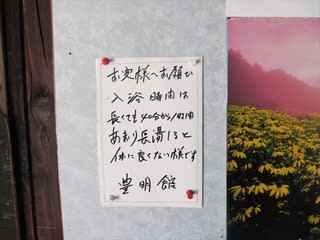 お客様へお願い
入浴時間は
長くても40分から1時間
あまり長湯すると
体に良くない様です
豊明館